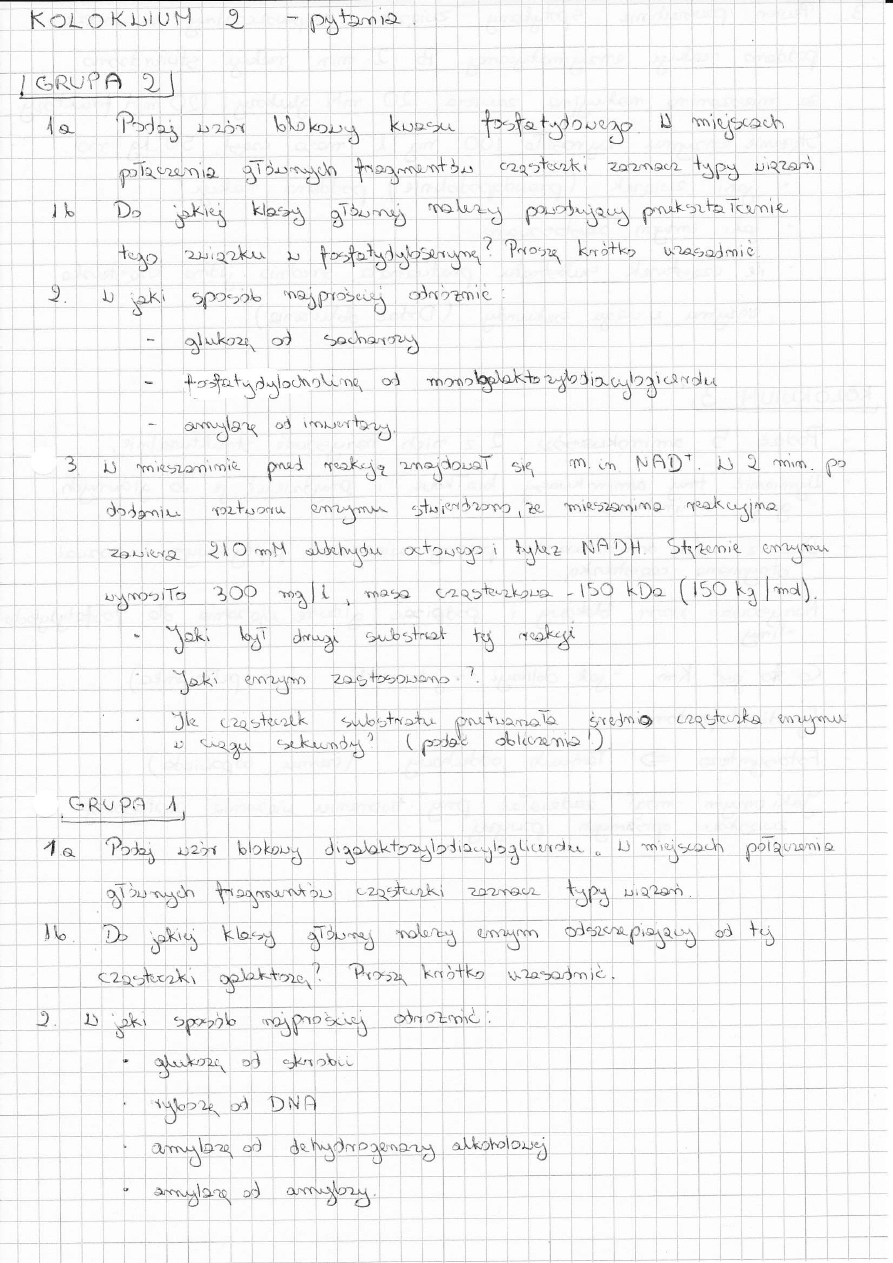 KOLOKWIUM 2 - pytania.
GRUPA 2
1a Podaj wzór blokowy kwasu fosfatydowego. W miejscach
połączenia głównych fragmentów cząsteczki zaznacz typy wiązań.
1b Do jakiej klasy głównej należy powodujący przekształcenie
tego związku w fosfatydyloserynę? Proszę krótko uzasadnić.
2. W jaki sposób najprościej odróżnić:
- glukozę od sacharozy
- fosfatydylocholinę od monogalaktozylodiacylogicerdu
- amylazę od inwertazy.
3 W mieszaninie przed reakcją znajdował się m.in NAD+. W 2 min. po
dodaniu roztworu enzymu stwierdzono, że mieszanina reakcyjna
zawiera 210 mM aldehydu octowego i tyleż NADH. Stężenie enzymu
wynosiło 300 mg/l, masa cząsteczkowa - 150 kDa (150 kg/mol).
· Jaki był drugi substrat tej reakcji
· Jaki enzym zastosowano?
· Ile cząsteczek substratu przetwarzała średnio cząsteczka enzymu
w ciągu sekundy? (podać obliczenia!)
GRUPA 1
1a Podaj wzór blokowy digalaktozylodiacyloglicerdu. W miejscach połączenia
głównych fragmentów cząsteczki zaznacz typy wiązań.
1b. Do jakiej klasy głównej należy enzym odszczepiający od tej
cząsteczki galaktozę? Proszę krótko uzasadnić.
2. W jaki sposób najprościej odróżnić:
· glukozę od skrobii
· rybozę od DNA
· amylazę od dehydrogenazy alkoholowej
· amylazę od amylozy.